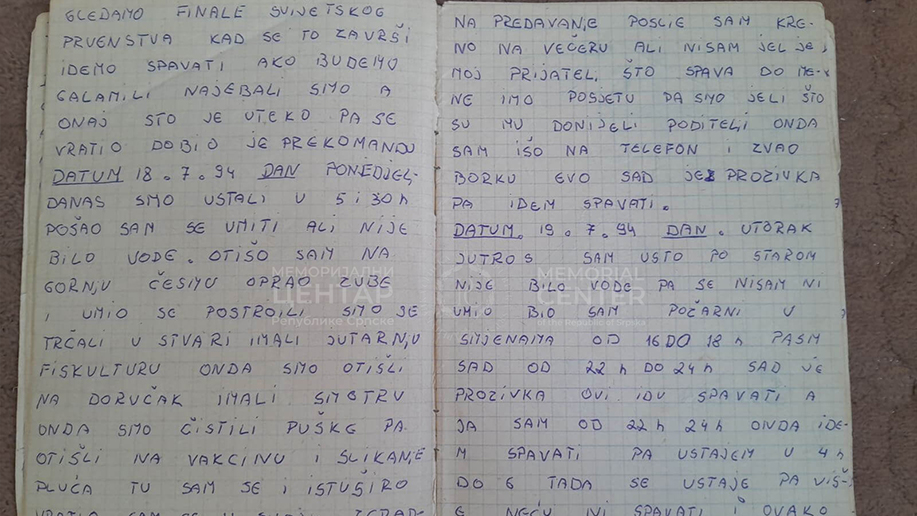 GLEDAMO FINALE SVIJETSKOG
PRVENSTVA KAD SE TO ZAVRŠI
IDEMO SPAVATI AKO BUDEMO
GALAMILI NAJEBALI SMO A
ONAJ STO JE UTEKO PA SE
VRATIO DOBIO JE PREKOMANDU
DATUM 18.7.94 DAN PONEDJELJ-
DANAS SMO USTALI U 5 I 30 h
POŠAO SAM SE UMITI ALI NIJE
BILO VODE. OTIŠO SAM NA
GORNJU ČESMU OPRAO ZUBE
I UMIO SE POSTROILI SMO SE
TRČALI U STVARI IMALI JUTARNJU
FISKULTURU ONDA SMO OTIŠLI
NA DORUČAK IMALI SMOTRU
ONDA SMO ČISTILI PUŠKE PA
OTIŠLI NA VAKCINU I SLIKANJE
PLUĆA TU SAM SE I ISTUŠIRO
VRATIO SAM SE U
NA PREDAVANJE POSLIE SAM KRE-
NO NA VEČERU ALI NISAM JEL JE,
MOJ PRIJATEL, ŠTO SPAVA DO ME-
NE IMO POSJETU PA SMO JELI ŠTO
SU MU DONIJELI RODITELJI ONDA
SAM IŠO NA TELEFON I ZVAO
BORKU EVO SAD JE PROZIVKA
PA IDEM SPAVATI.
DATUM. 19.7.94 DAN. UTORAK
JUTROS SAM USTO PO STAROM
NIJE BILO VODE PA SE NISAM NI
UMIO BIO SAM POŽARNI U
SMJENAMA OD 16 DO 18 h PA SM
SAD OD 22 h DO 24 h SAD JE
PROZIVKA OVI IDU SPAVATI A
JA SAM OD 22 h 24 h ONDA IDE-
M SPAVATI PA USTAJEM U 4 h
DO 6 TADA SE USTAJE PA VIŠ-
E NEĆU NI SPAVATI I OVAKO
МЕМОРИЈАЛНИ
ЦЕНТАР
Републике Српске
MEMORIAL
CENTER
of the Republic of Srpska